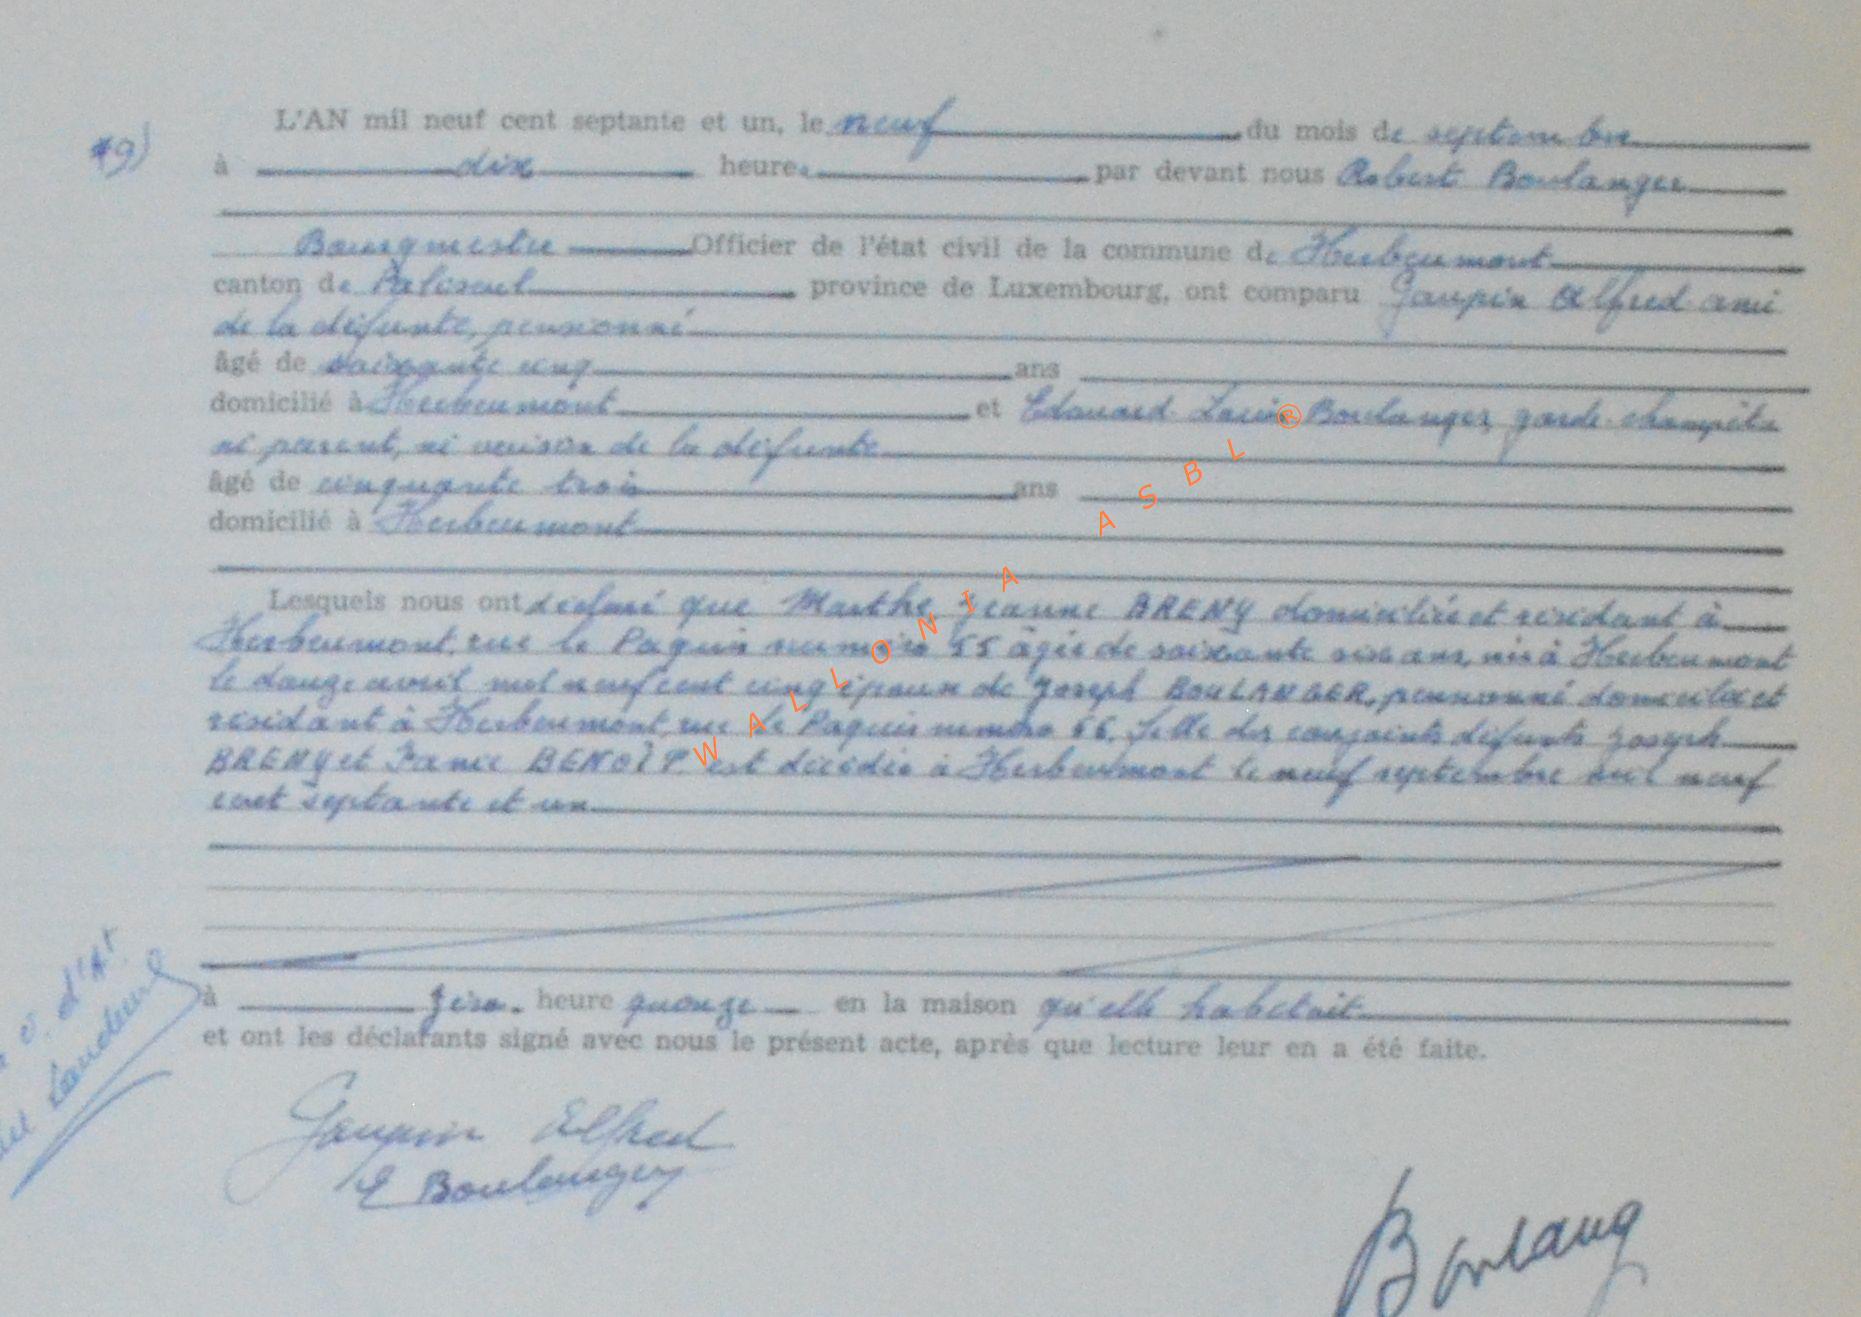 L'AN mil neuf cent septante et un, le neuf du mois de septembre
à dix heure. par devant nous Robert Boulanger
Bourgmestre Officier de l'état civil de la commune de Herbeumont
canton de Paliseul province de Luxembourg, ont comparu Gaupin Alfred ami
de la défunte, pensionné
âgé de soixante cinq ans
domicilié à Herbeumont et Edouard Boulanger, garde-champêtre
ni parent, ni voisin de la défunte
âgé de cinquante trois ans
domicilié à Herbeumont
Lesquels nous ont déclaré que Marthe Jeanne BRENY domiciliée et résidant à
Herbeumont, rue le Paquis numéro âgée de soixante six ans, née à Herbeumont
le douze avril mil neuf cent cinq épouse de Joseph BOULANGER, pensionné domicilié et
résidant à Herbeumont, rue le Paquis numéro fille des conjoints défunts Joseph
BRENY et BENOÎT est décédée à Herbeumont le neuf septembre mil neuf
cent septante et un
à heure quinze en la maison qu'elle habitait
et ont les déclarants signé avec nous le présent acte, après que lecture leur en a été faite.
Gaupin Alfred
E Boulanger
Boulang
WALLONIA ASBL ®